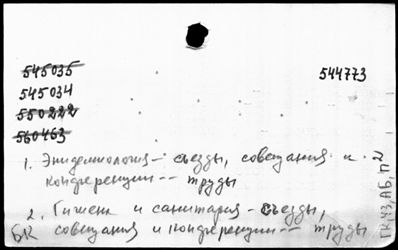 545035
545034 544773
550222
560463
1. Эпидемиология - съезды, совещания и
конференции -- труды
2. Гигиена и санитария - съезды,
БК совещания и конференции -- труды
ГК, УЗ, АБ, П2